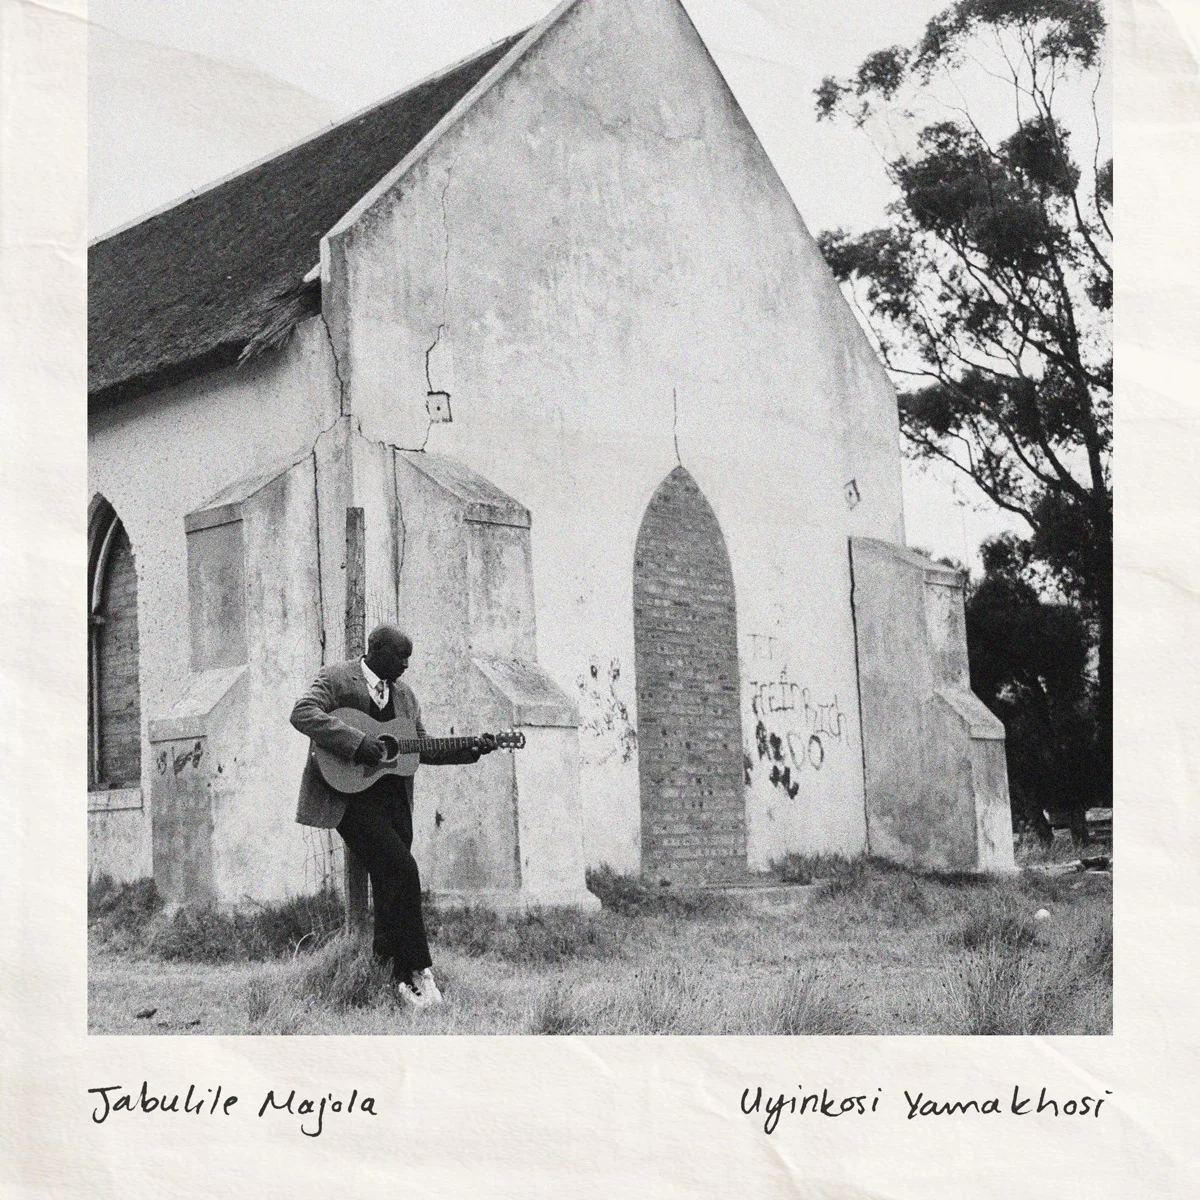 Jabulile Majola
Uyinkosi Yamakhosi